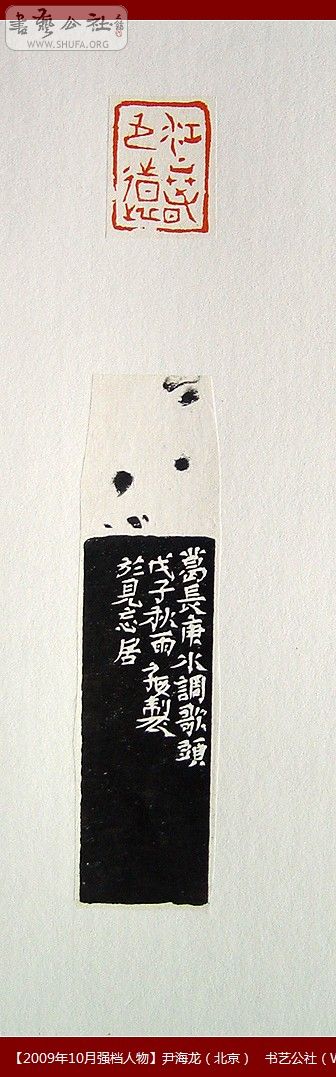 書藝公社
WWW.SHUFA.ORG
江上春
山遠
葛長庚水調歌頭
戊子秋雨製
於見忘居
【2009年10月强档人物】尹海龙（北京） 书艺公社（W